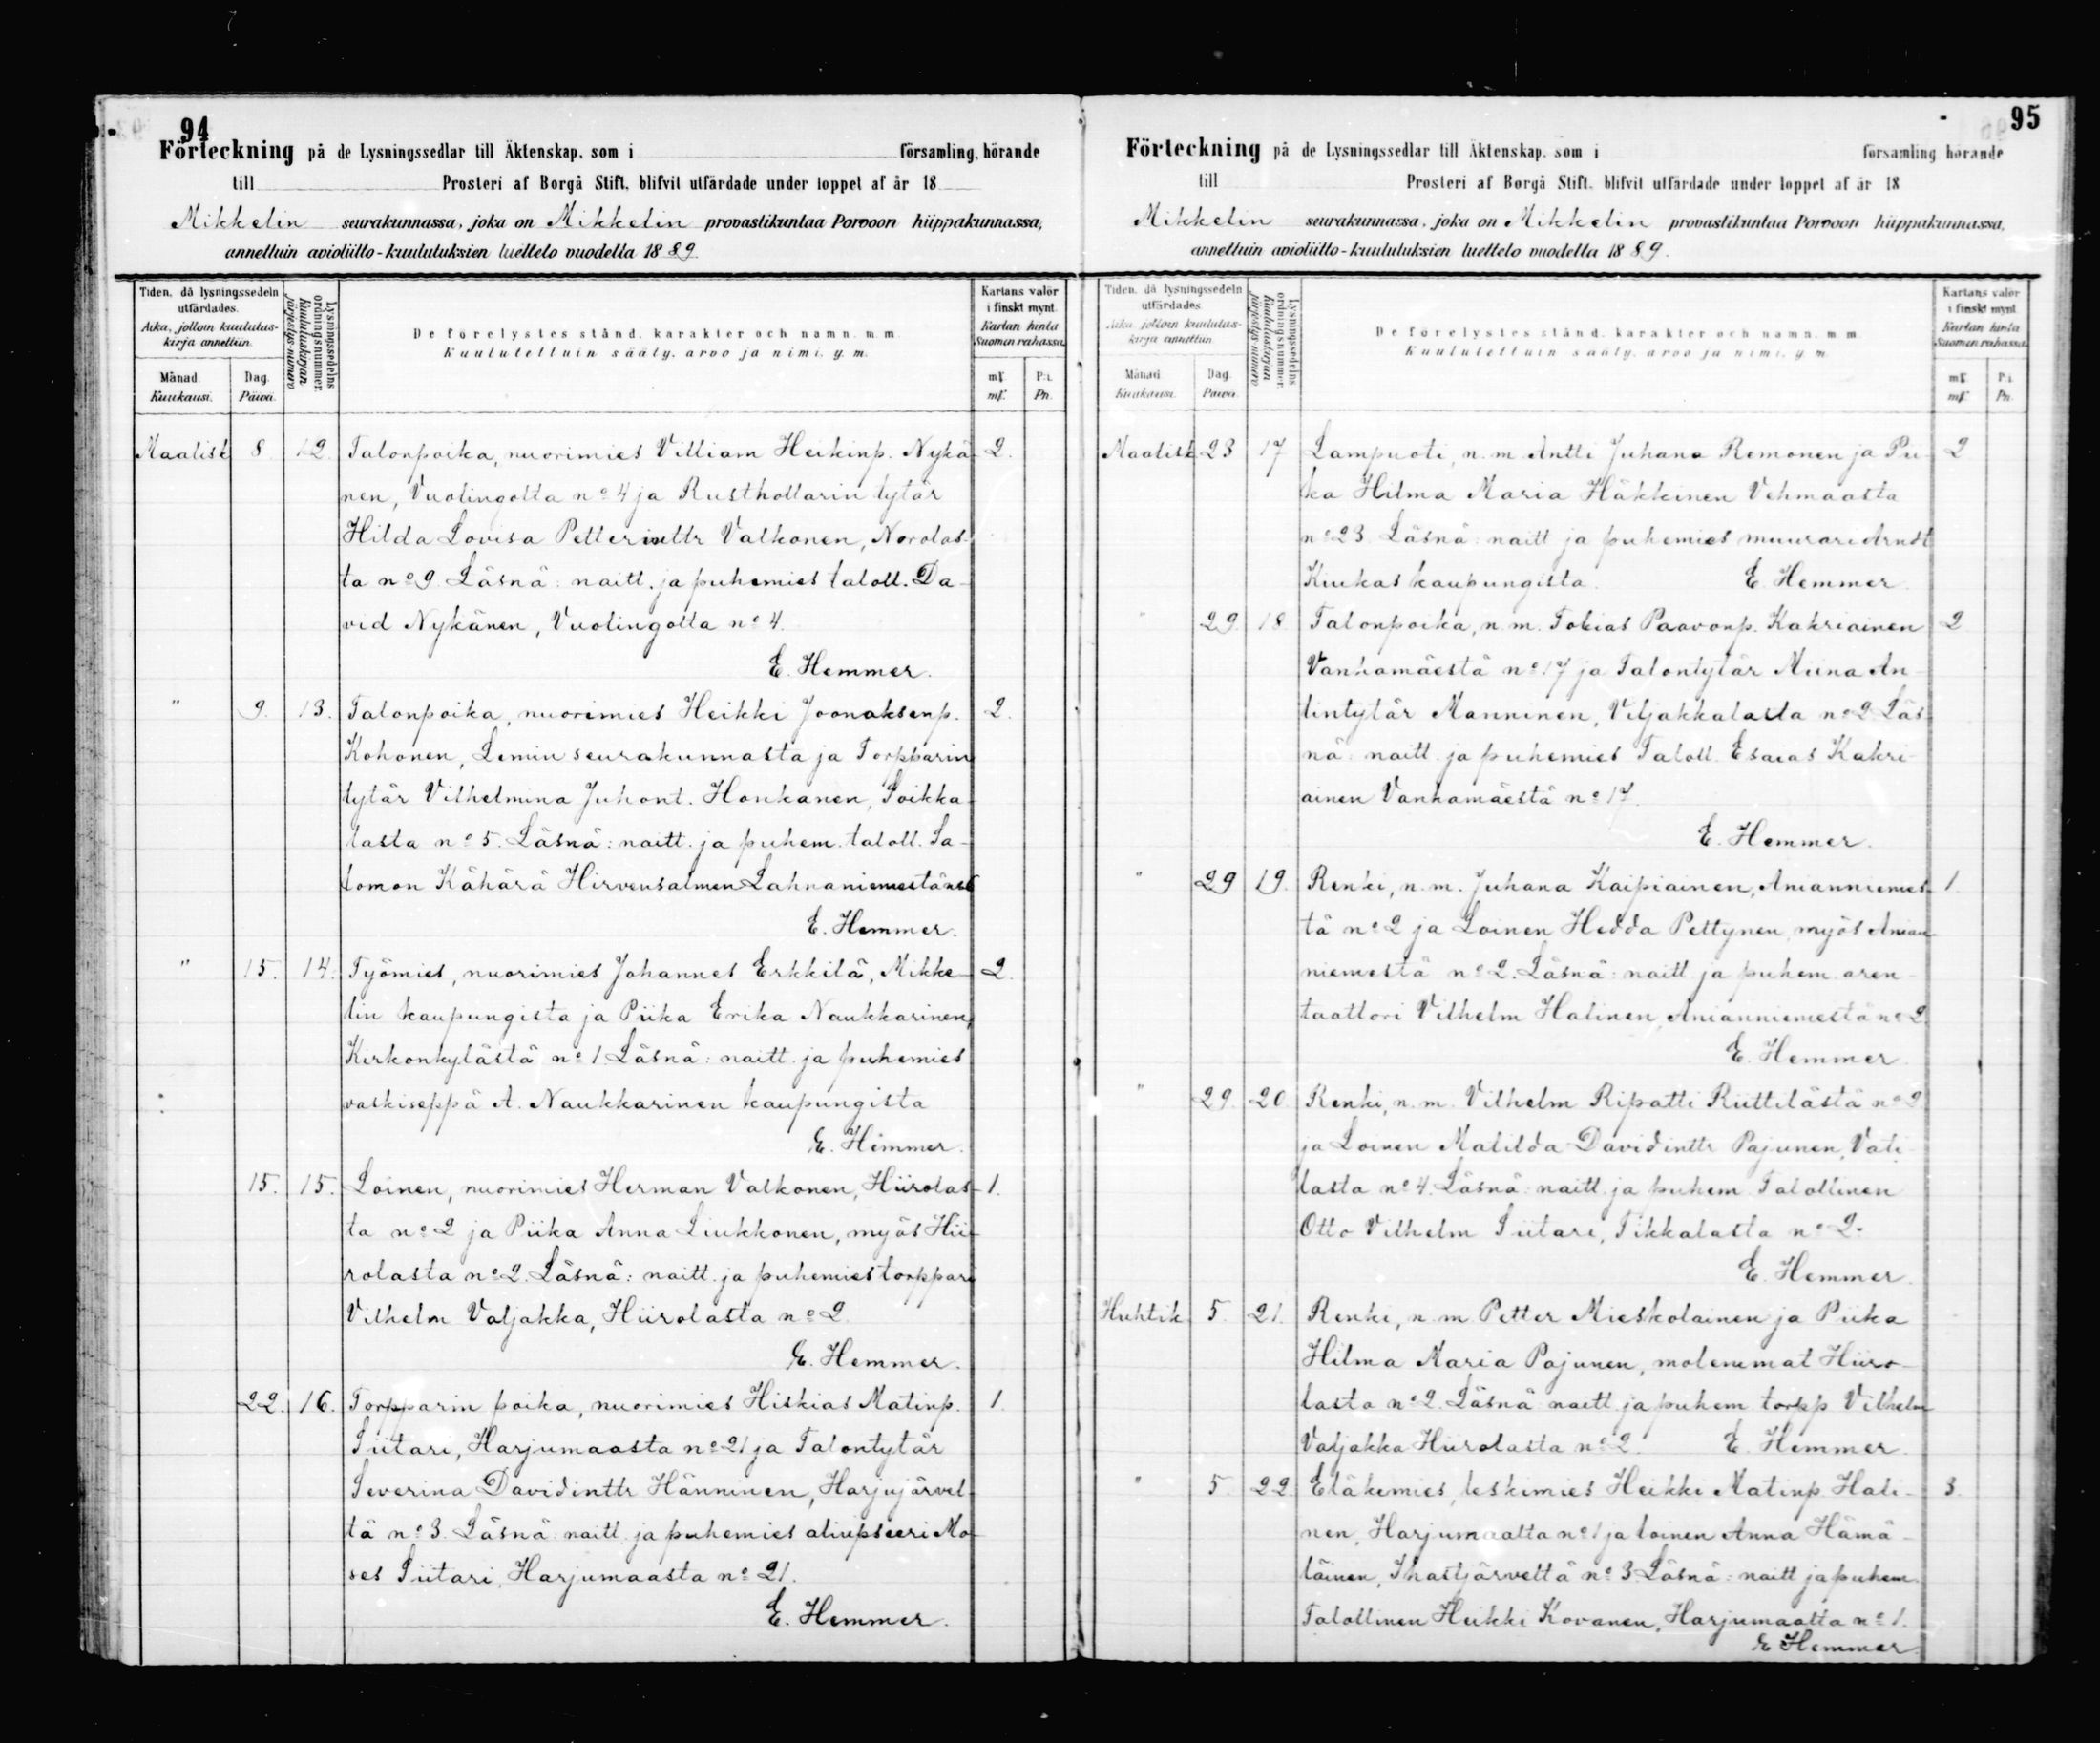 94
Förteckning på de Lysningssedlar till Äktenskap, som i församling, hörande
till Prosteri af Borgå Stift, blifvit utfärdade under loppet af år 18
Mikkelin seurakunnassa, joka on Mikkelin provastikuntaa Porvoon hiippakunnassa,
annettuin avioliitto-kuulutuksien luettelo vuodella 1889.
Tiden, då lysningssedeln utfärdades.
Aika, jolloin kuulutus-kirja annettiin.
Månad. Kuukausi.
Dag. Päivä.
Lysningssedelns ordningsnummer.
Kuulutuskirjan järjestys-numero
De förelystes stånd, karakter och namn m. m.
Kuulutettuin sääty, arvo ja nimi, y. m.
Kartans valör i finskt mynt.
Kartan hinta Suomen rahassa.
mf. P:i.
mf. Pn.
Maalisk 8 12. Talonpoika, nuorimies Villiam Heikinp. Nykä- 2.
nen, Vuolingolta no 4 ja Rusthollarin tytär
Hilda Lovisa Petterinttr Valkonen, Norolas-
ta no 9. Läsnä: naitt. ja puhemies taloll. Da-
vid Nykänen, Vuolingolta no 4.
E. Hemmer.
" 9. 13. Talonpoika, nuorimies Heikki Joonaksenp. 2.
Kohonen, Lemin seurakunnasta ja Torpparin
tytär Vilhelmina Juhont. Honkanen, Soikka-
lasta no 5. Läsnä: naitt. ja puhem. taloll. Sa-
lomon Kähärä Hirvensalmen Lahnaniemestä
E. Hemmer.
" 15. 14. Työmies, nuorimies Johannes Erkkilä, Mikke- 2.
lin kaupungista ja Piika Erika Naukkarinen,
Kirkonkylästä no 1 Läsnä: naitt. ja puhemies
vaskiseppä A. Naukkarinen kaupungista
E. Hemmer.
15. 15. Loinen, nuorimies Herman Valkonen, Hiirolas- 1.
ta no 2 ja Piika Anna Liukkonen, myös Hii-
rolasta no 2. Läsnä: naitt. ja puhemies torppari
Vilhelm Valjakka, Hiirolasta no 2
E. Hemmer.
22. 16. Torpparin poika, nuorimies Hiskias Matinp. 1.
Siitari, Harjumaasta no 21 ja Talontytär
Severina Davidinttr Hänninen, Harjujärvel-
tä no 3. Läsnä: naitt. ja puhemies aliupseeri Mo-
ses Siitari, Harjumaasta no 21.
E. Hemmer.
95
Förteckning på de Lysningssedlar till Äktenskap, som i församling hörande
till Prosteri af Borgå Stift, blifvit utfärdade under loppet af år 18
Mikkelin seurakunnassa, joka on Mikkelin provastikuntaa Porvoon hiippakunnassa,
annettuin avioliitto-kuulutuksien luettelo vuodella 1889.
Tiden, då lysningssedeln utfärdades.
Aika, jolloin kuulutus-kirja annettiin.
Månad. Kuukausi.
Dag. Päivä.
Lysningssedelns ordningsnummer.
Kuulutuskirjan järjestys-numero
De förelystes stånd, karakter och namn m. m.
Kuulutettuin sääty, arvo ja nimi, y. m.
Kartans valör i finskt mynt.
Kartan hinta Suomen rahassa.
mf. P:i.
mf. Pn.
Maalisk 23 17 Lampuoti, n. m. Antti Juhana Romonen ja Pii- 2
ka Hilma Maria Häkkinen Vehmaasta
no 23 Läsnä: naitt ja puhemies muurari Arndt
Kiukas kaupungista. E. Hemmer
" 29. 18 Talonpoika, n. m. Tobias Paavonp. Kakriainen 2
Vanhamäestä no 17 ja Talontytär Miina An-
tintytär Manninen, Viljakkalasta no 2 Läs-
nä: naitt. ja puhemies Taloll. Esaias Kakri-
ainen Vanhamäestä no 17.
E. Hemmer.
" 29 19. Renki, n. m. Juhana Kaipiainen, Anianniemes- 1
tä no 2 ja Loinen Hedda Pettynen myös Anian-
niemestä no 2. Läsnä: naitt ja puhem. aren-
taattori Vilhelm Halinen, Anianniemestä no 2.
E. Hemmer
" 29. 20 Renki, n. m. Vilhelm Ripatti Riittilästä no 2
ja Loinen Matilda Davidinttr Pajunen, Vati-
lasta no 4. Läsnä: naitt. ja puhem Talollinen
Otto Vilhelm Siitari, Tikkalasta no 2.
E. Hemmer.
Huhtik 5. 21. Renki, n. m Petter Mieskolainen ja Piika
Hilma Maria Pajunen, molemmat Hiiro-
lasta no 2. Läsnä naitt. ja puhem torpp Vilhelm
Valjakka Hiirolasta no 2. E. Hemmer.
" 5. 22. Eläkemies, leskimies Heikki Matinp. Hali- 3.
nen, Harjumaalta no 1 ja loinen Anna Hämä-
läinen, Ihastjärveltä no 3 Läsnä: naitt ja puhem.
Talollinen Heikki Kovanen, Harjumaalta no 1.
E Hemmer